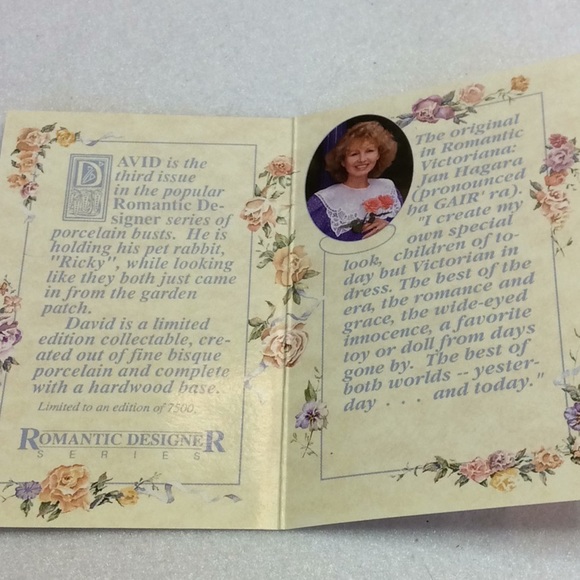 DAVID is the
third issue
in the popular
Romantic De-
signer series of
porcelain busts. He is
holding his pet rabbit,
"Ricky", while looking
like they both just came
in from the garden
patch.
David is a limited
edition collectable, cre-
ated out of fine bisque
porcelain and complete
with a hardwood base.
Limited to an edition of 7500.
ROMANTIC DESIGNER
SERIES
The original
in Romantic
Victoriana:
Jan Hagara
(pronounced
ha GAIR' ra).
"I create my
own special
look, children of to-
day but Victorian in
dress. The best of the
era, the romance and
grace, the wide-eyed
innocence, a favorite
toy or doll from days
gone by. The best of
both worlds -- yester-
day . . . and today."